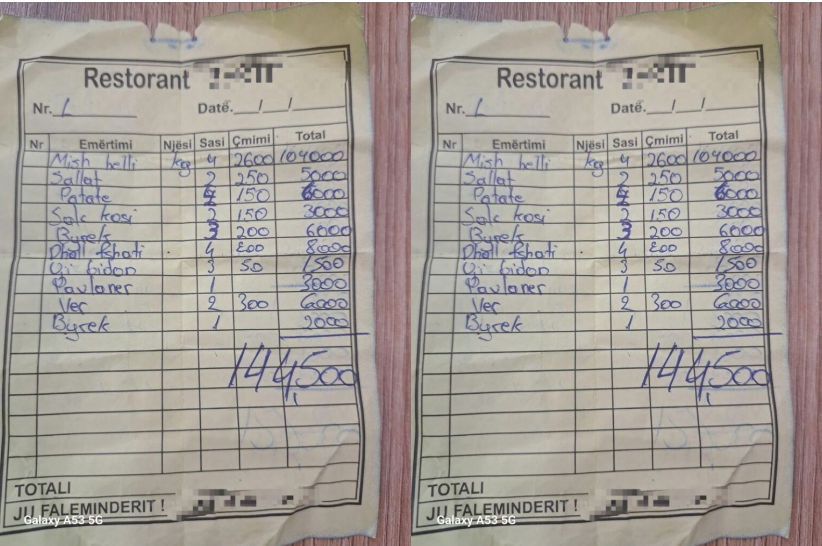 Restorant
Nr. 1 Datë. / /
Nr Emërtimi Njësi Sasi Çmimi Total
Mish helli kg 4 2600 104000
Sallat 2 250 5000
Patate 4 150 6000
Salc kosi 2 150 3000
Byrek 3 200 6000
Dhall fshati 4 200 8000
Uj bidon 3 50 1500
Paulaner 1 3000
Ver 2 300 6000
Byrek 1 2000
144500
TOTALI
JU FALEMINDERIT !
Galaxy A53 5G
Restorant
Nr. 1 Datë. / /
Nr Emërtimi Njësi Sasi Çmimi Total
Mish helli kg 4 2600 104000
Sallat 2 250 5000
Patate 4 150 6000
Salc kosi 2 150 3000
Byrek 3 200 6000
Dhall fshati 4 200 8000
Uj bidon 3 50 1500
Paulaner 1 3000
Ver 2 300 6000
Byrek 1 2000
144500
TOTALI
JU FALEMINDERIT !
Galaxy A53 5G